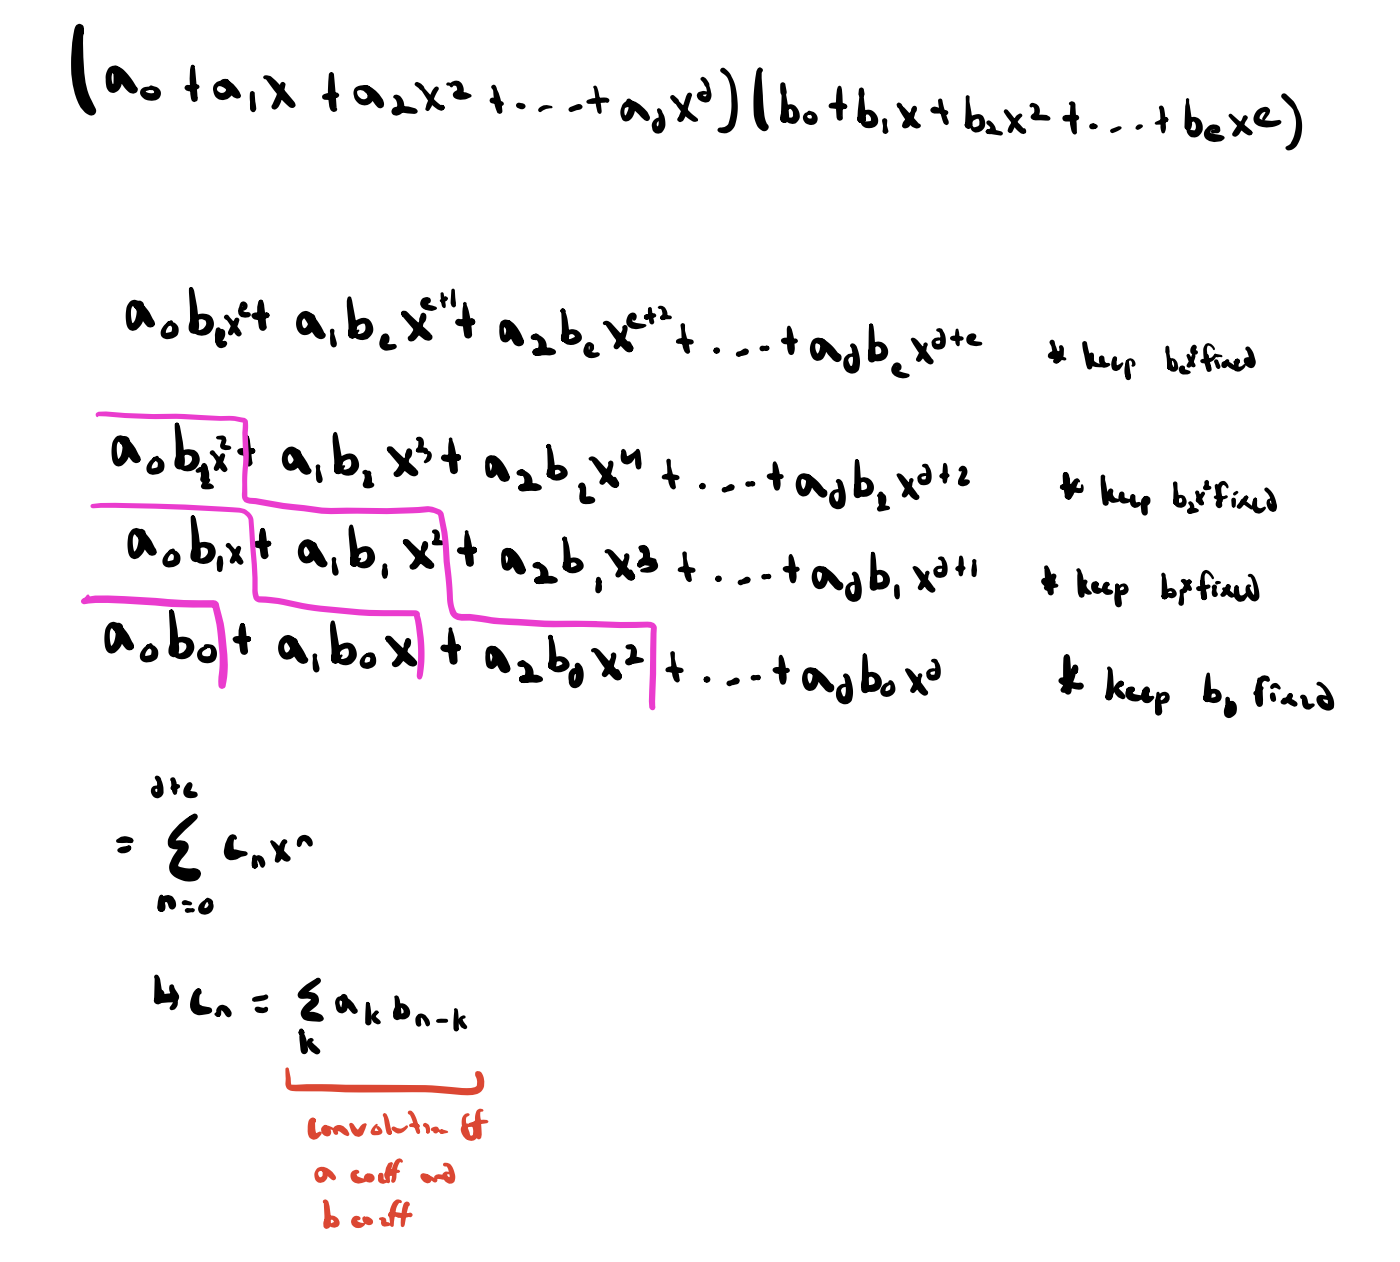 (a₀ + a₁x + a₂x² + ... + a_d x^d)(b₀ + b₁x + b₂x² + ... + b_e x^e)
a₀b_e x^e + a₁b_e x^{e+1} + a₂b_e x^{e+2} + ... + a_d b_e x^{d+e} * keep b_e x^e fixed
a₀b₂x² + a₁b₂x³ + a₂b₂x⁴ + ... + a_d b₂x^{d+2} * keep b₂x² fixed
a₀b₁x + a₁b₁x² + a₂b₁x³ + ... + a_d b₁x^{d+1} * keep b₁x fixed
a₀b₀ + a₁b₀x + a₂b₀x² + ... + a_d b₀x^d * keep b₀ fixed
d+e
= Σ c_n x^n
n=0
↳ c_n = Σ a_k b_{n-k}
k
convolution of
a coeff and
b coeff